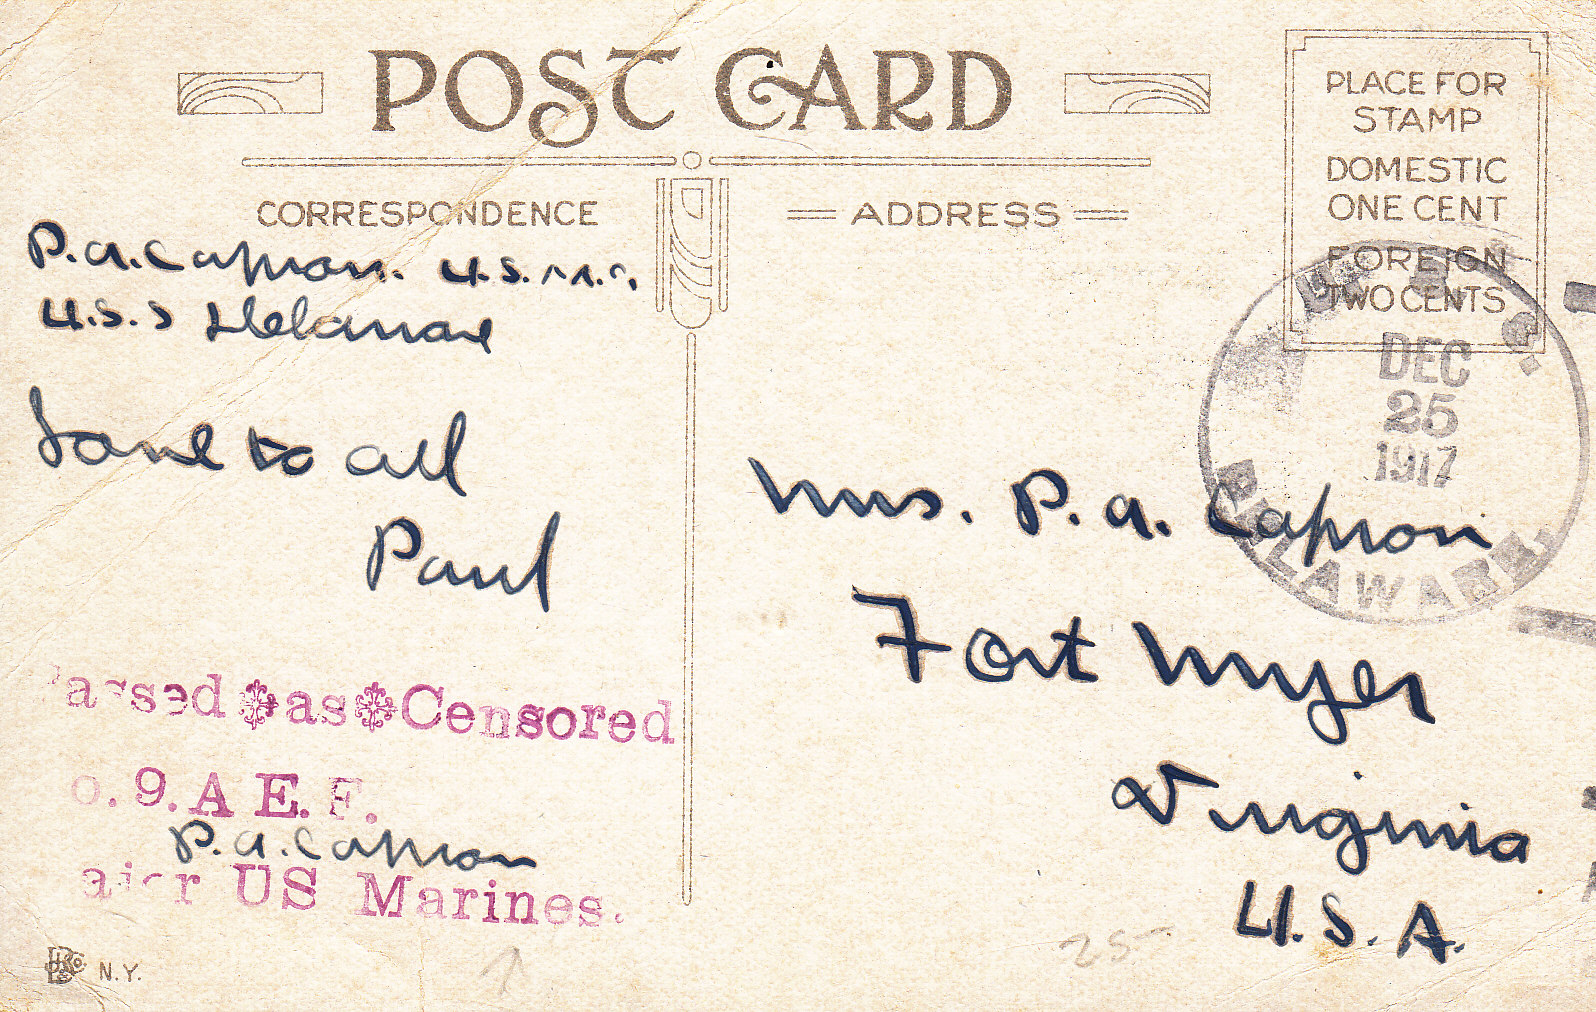 POST CARD
CORRESPONDENCE
ADDRESS
PLACE FOR
STAMP
DOMESTIC
ONE CENT
FOREIGN
TWO CENTS
P.A. Capron. U.S.M.C.
U.S.S Delaware
Love to all
Paul
U. S. S.
DEC
25
1917
DELAWARE.
Mrs. P. A. Capron
Fort Myer
Virginia
U.S.A.
assed as Censored
o. 9. A E. F.
P. A. Capron
ajor US Marines.
N.Y.
25-